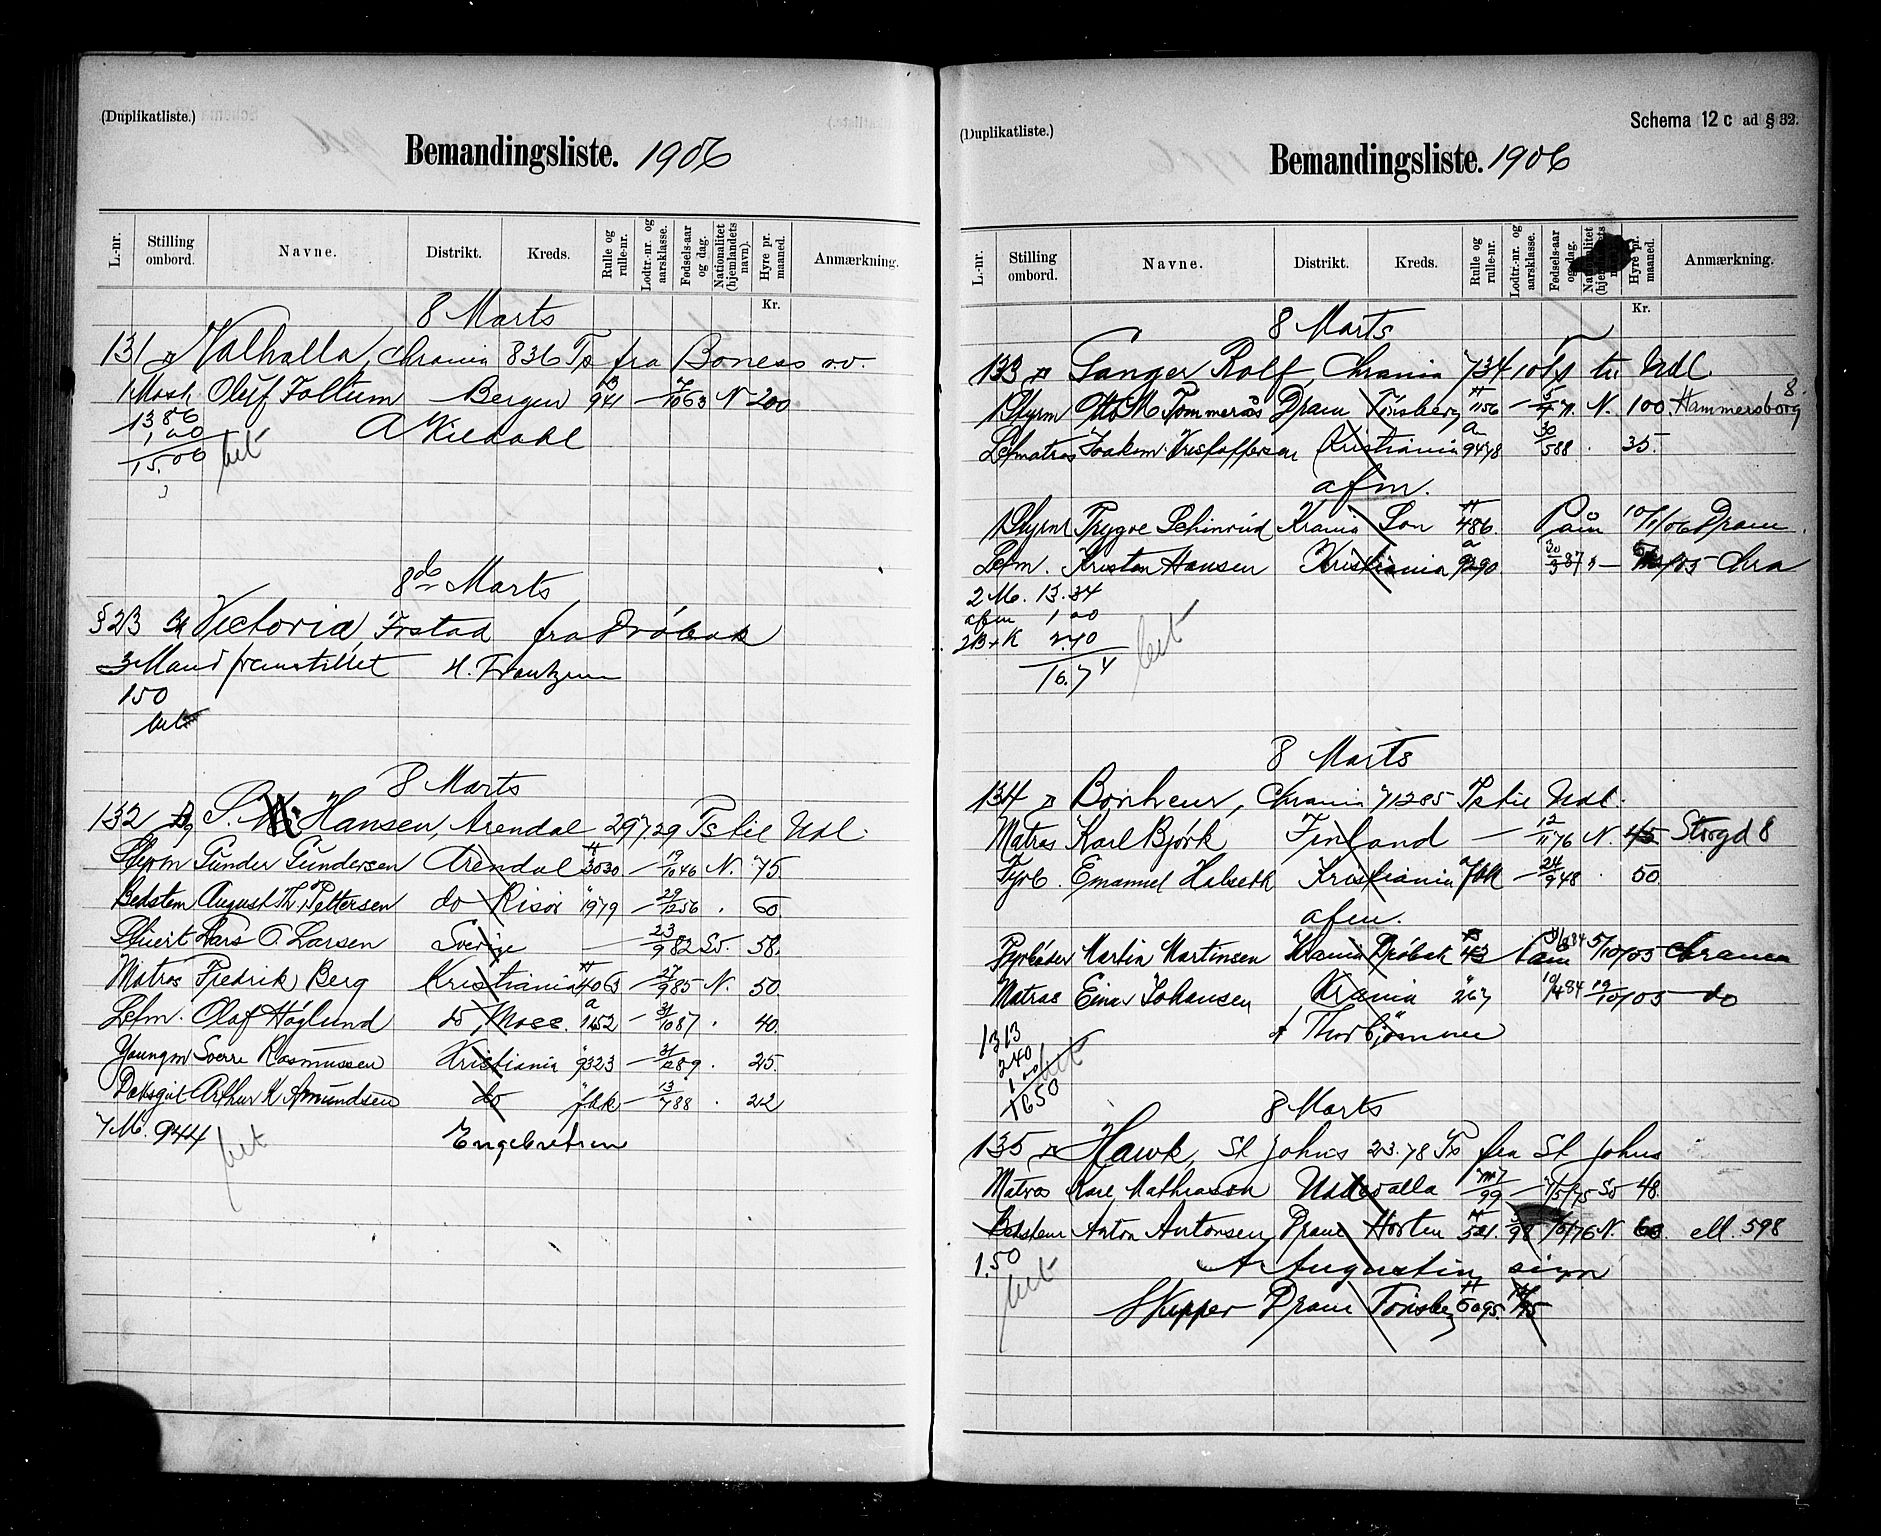 (Duplikatliste.)
Bemandingsliste. 1906
L.-nr. Stilling ombord. Navne. Distrikt. Kreds. Rulle og rulle-nr. Lodtr.-nr. og aarsklasse. Fødsels-aar og dag. Nationalitet (hjemlandets navn). Hyre pr. maaned. Anmærkning.
Kr.
8 Marts
131 Valhalla, Chrania 836 Ts fra Boness o.v.
1 Mask Oluf Foltum Bergen 941 7/10 63 N 200
13 86
1,00
15,00 bet
8de Marts
§ 23 Victoria, Frstad fra Drøbak
3 Mand fremstillet H. Frantzen
150
bet
8 Marts
132 S. Hansen, Arendal 297.29 Ts til Udl.
Styrm Gunder Gundersen Arendal 3030 19/10 46 N. 75
Bedstem August Th. Pettersen do Risör 1979 29/12 56 . 60
Stuert Lars O. Larsen Sverige 23/9 82 Sv. 58.
Matros Fredrik Berg Kristiania 4063 27/9 85 N. 50.
Letm. Olaf Höglund do Moss. a 1452 31/10 87 . 40.
Youngm Sverre Rasmussen Kristiania " 9323 31/12 89 . 25.
Dæksgut Arthur K Amundsen do " fbk 13/7 88 . 22
7 M. 944 bet Engebretsen
(Duplikatliste.)
Schema 12 c ad § 32.
Bemandingsliste. 1906
L.-nr. Stilling ombord. Navne. Distrikt. Kreds. Rulle og rulle-nr. Lodtr.-nr. og aarsklasse. Fødsels-aar og dag. Hyre pr. maaned. Anmærkning.
Kr.
8 Marts
133 Ganger Rolf, Chrania 734 10 Ts til Udl.
1 Styrm Otto M Tommerås Dram Tönsberg 1156 71. N. 100. Hammersborg 8.
Letmatros Joakim Kristoffersen Kristiania a 9478 30/5 88 . 35.
afm.
1 Styrm Trygve Schinrud Krania Son 486. Paam 10/1/06 Dram.
Letm. Kristan Hansen Kristiania a 9290 30/3 87 /05 Chra
2 M. 13.34
afm 1 00
2 B + K 2.40
16.74 bet
8 Marts
134 Bonheur, Chrania 71285 Ts til Udl.
Matros Karl Bjørk Finland 12/11 76 N. 45 Storgd 8
Fyrb. Emanuel Halseth Kristiania a fbk 24/9 48 . 50.
afm.
Fyrbøder Martin Martinsen Krania Drøbak 43 Paam 5/10/05 Chrania
Matros Einar Johansen Krania " 267 10/4 84 19/10/05 do
Thorbjørnsen
13 13
2 40
1 00
16 50 bet
8 Marts
135 Hawk, St Johns 23.78 Ts fra St Johns
Matros Karl Mathiason Uddevalla 99 /5/75 Sv 48.
Bedstem Anton Antonsen Dram Horten 521. 98 76 N. 60. ell. 598
1.50 A Augustin sign
bet Skipper Dram Tønsberg 6095.